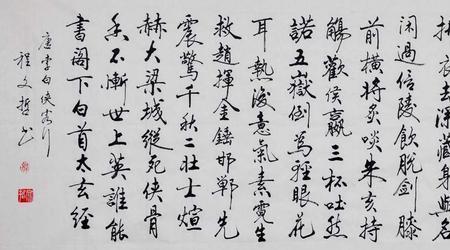 拂衣去深藏身與名
閑過信陵飲脫劍膝
前橫將炙啖朱亥持
觴勸侯嬴三杯吐然
諾五嶽倒為輕眼花
耳熱後意氣素霓生
救趙揮金錘邯鄲先
震驚千秋二壯士煊
赫大梁城縱死俠骨
香不慚世上英誰能
書閣下白首太玄經
唐李白俠客行
程文哲书